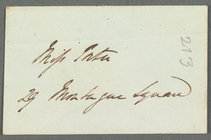 Miss Porter
29 Montague Square
213